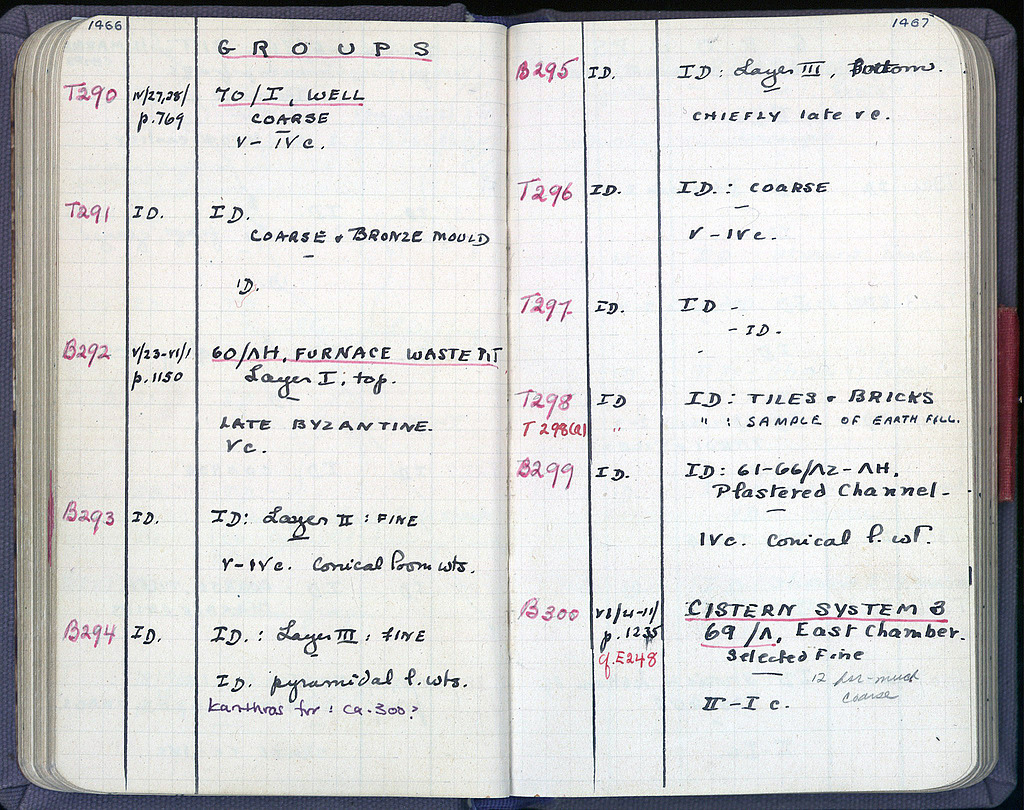 1466
GROUPS
T290 IV/27,28/ 70/I, WELL
p.769 COARSE
V-IVc.
T291 ID. ID.
COARSE & BRONZE MOULD
ID.
B292 V/23-VI/1 60/ΛH, FURNACE WASTE PIT
p.1150 Layer I; top.
LATE BYZANTINE.
Vc.
B293 ID. ID: Layer II : FINE
V-IVc. Conical loom wts.
B294 ID. ID.: Layer III : FINE
ID. pyramidal l. wts.
kantharos fr: ca.300?
1467
B295 ID. ID: Layer III, Bottom.
CHIEFLY late Vc.
T296 ID. ID.: COARSE
V-IVc.
T297 ID. ID -
- ID.
T298 ID ID: TILES & BRICKS
T298(a) " " : SAMPLE OF EARTH FILL.
B299 ID. ID: 61-66/ΛZ-ΛH.
Plastered Channel-
IVc. Conical l. wt.
B300 VI/4-11/ CISTERN SYSTEM 3
p.1235 69/Λ, East Chamber.
q.E248 Selected Fine
12 for-much
coarse
II-I c.